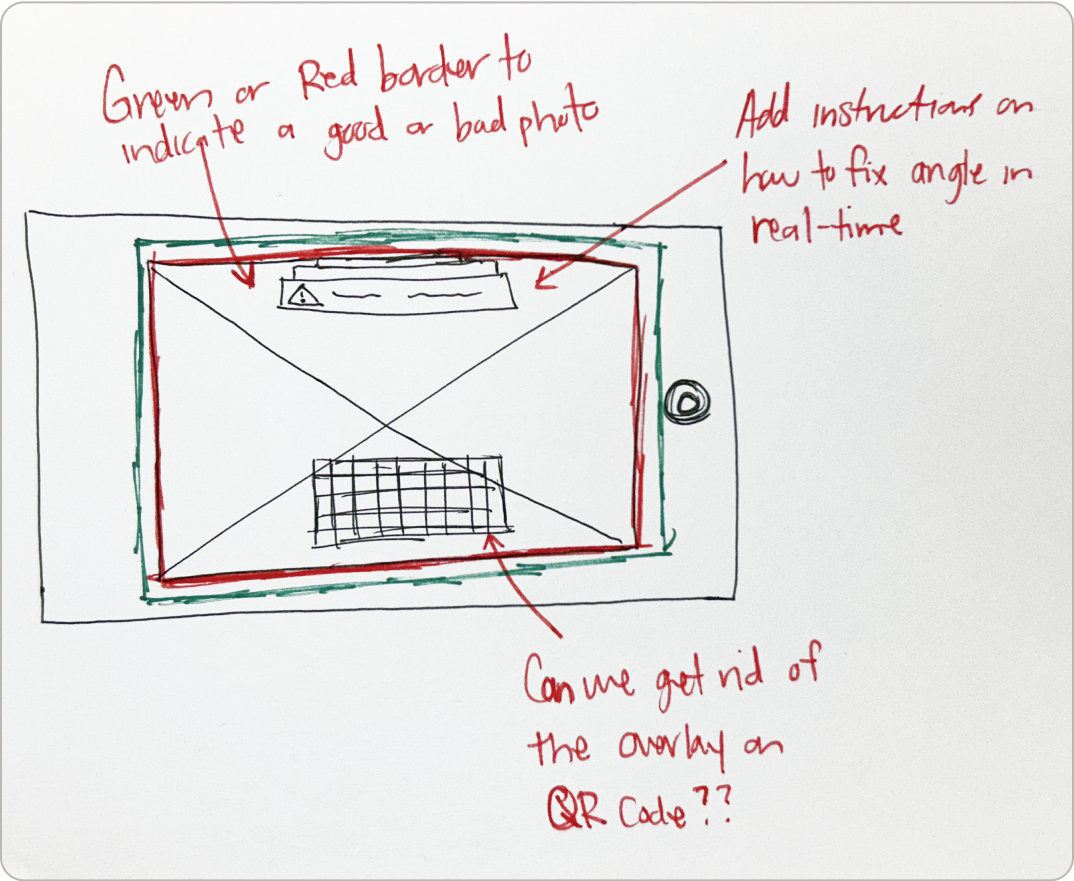 Green or Red border to
indicate a good or bad photo
Add instructions on
how to fix angle in
real-time
Can we get rid of
the overlay on
QR Code??